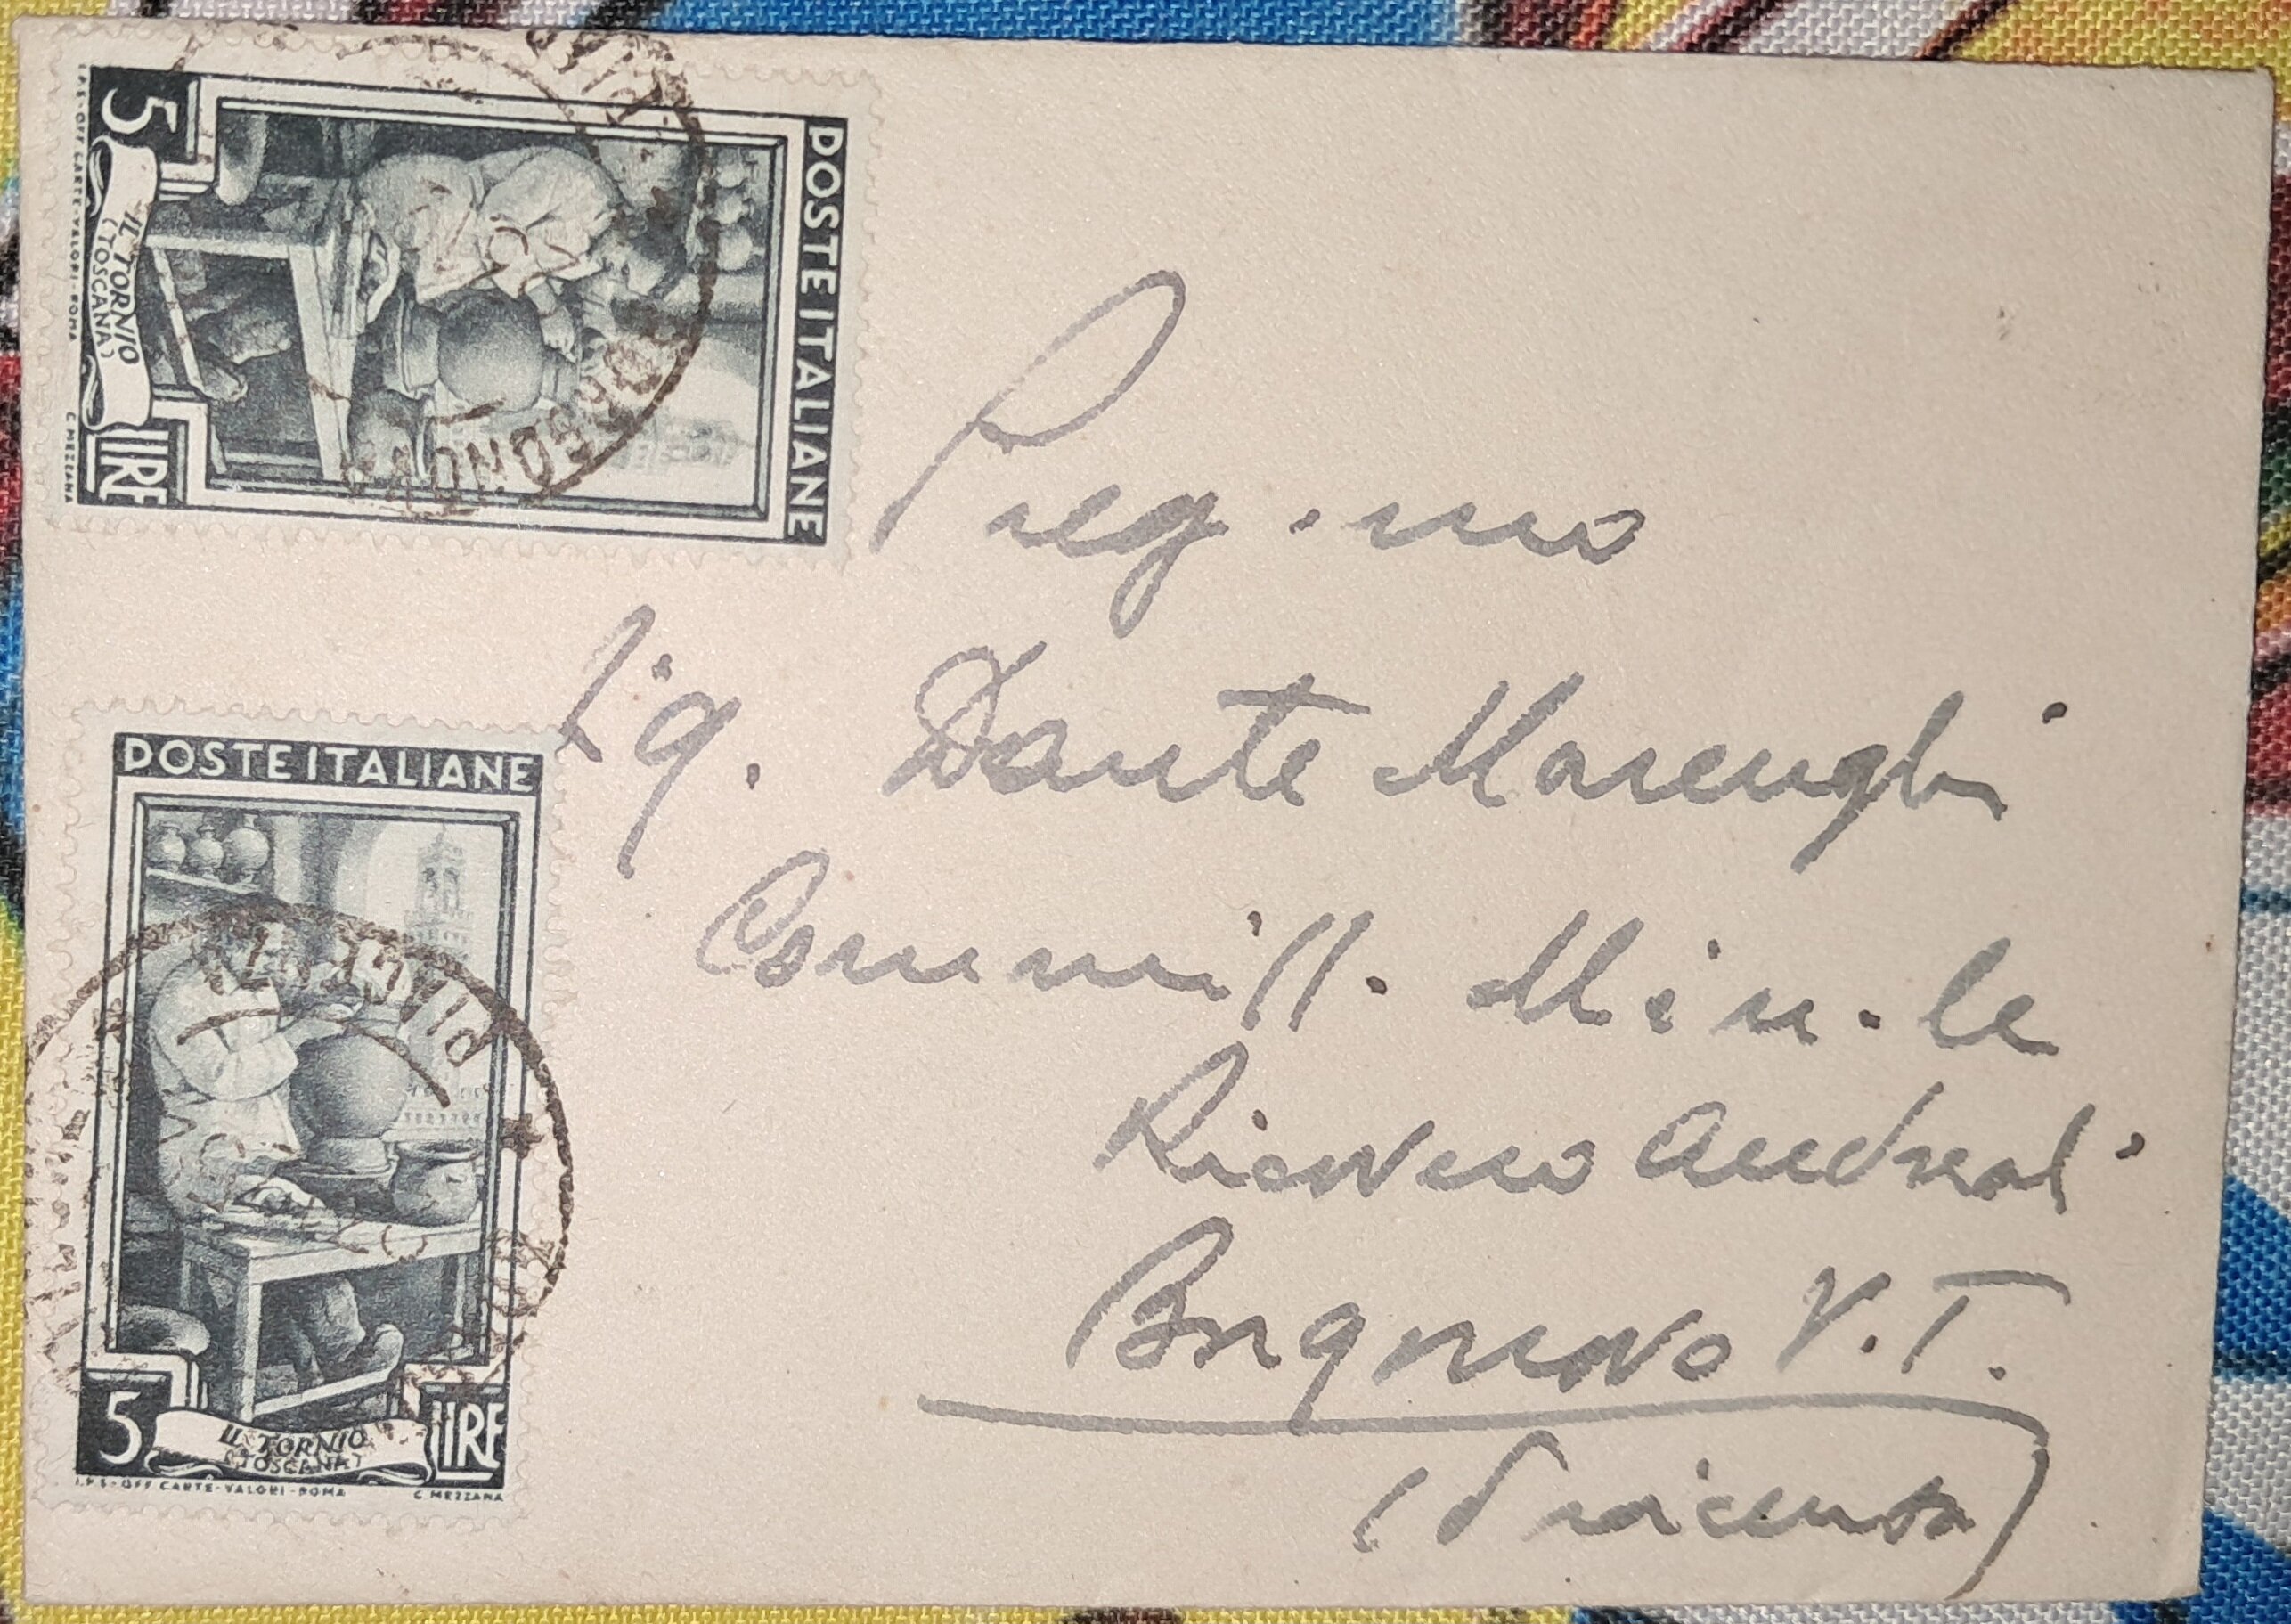 POSTE ITALIANE
5 LIRE
IL TORNIO
(TOSCANA)
I.P.S.-OFF. CARTE-VALORI-ROMA
C. MEZZANA
Preg.mo
Sig. Dante Marenghi
Commiss. Min.le
Ricovero Andreoli
Borgonovo V.T.
(Piacenza)
POSTE ITALIANE
PIACENZA
5 LIRE
IL TORNIO
(TOSCANA)
I.P.S-OFF. CARTE-VALORI-ROMA
C. MEZZANA